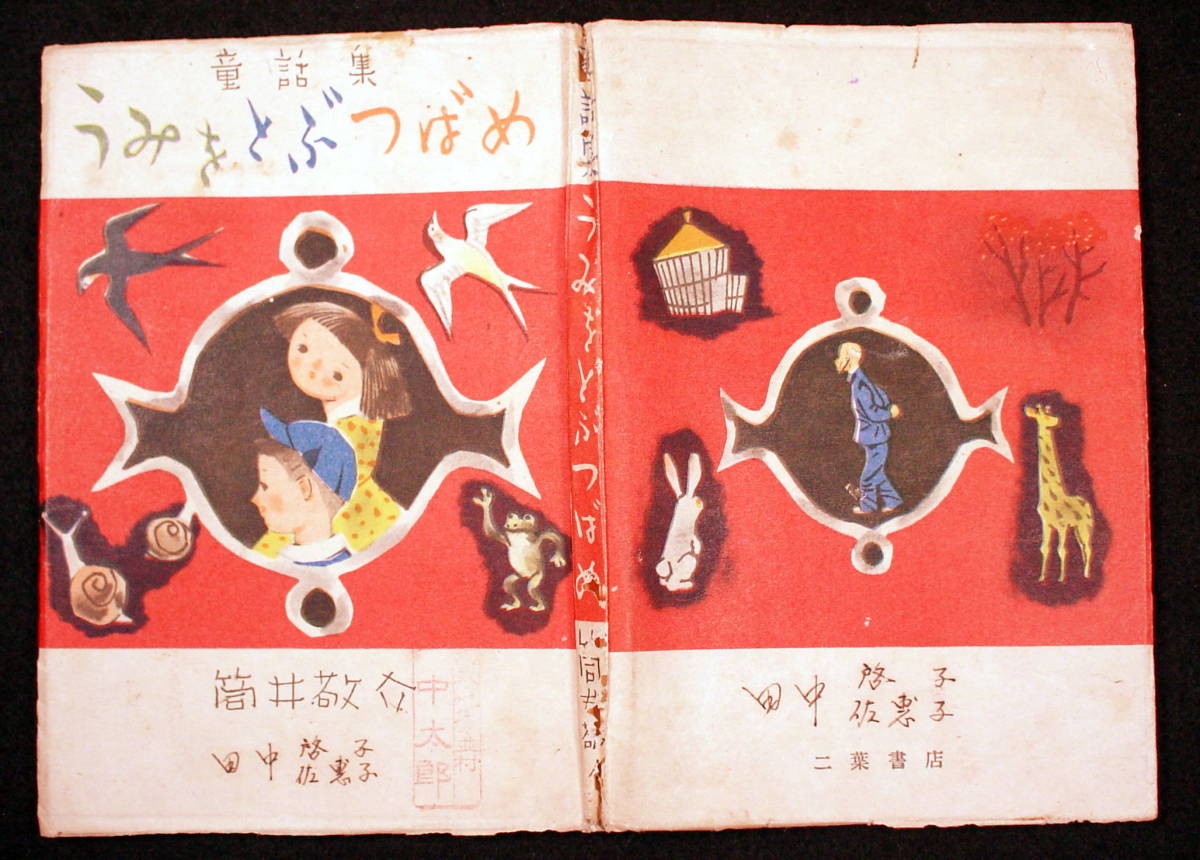 童話集
うみをとぶつばめ
筒井敬介
田中啓子
佐惠子
中太郎
童話集 うみをとぶつばめ 筒井敬介
田中啓子
佐惠子
二葉書店